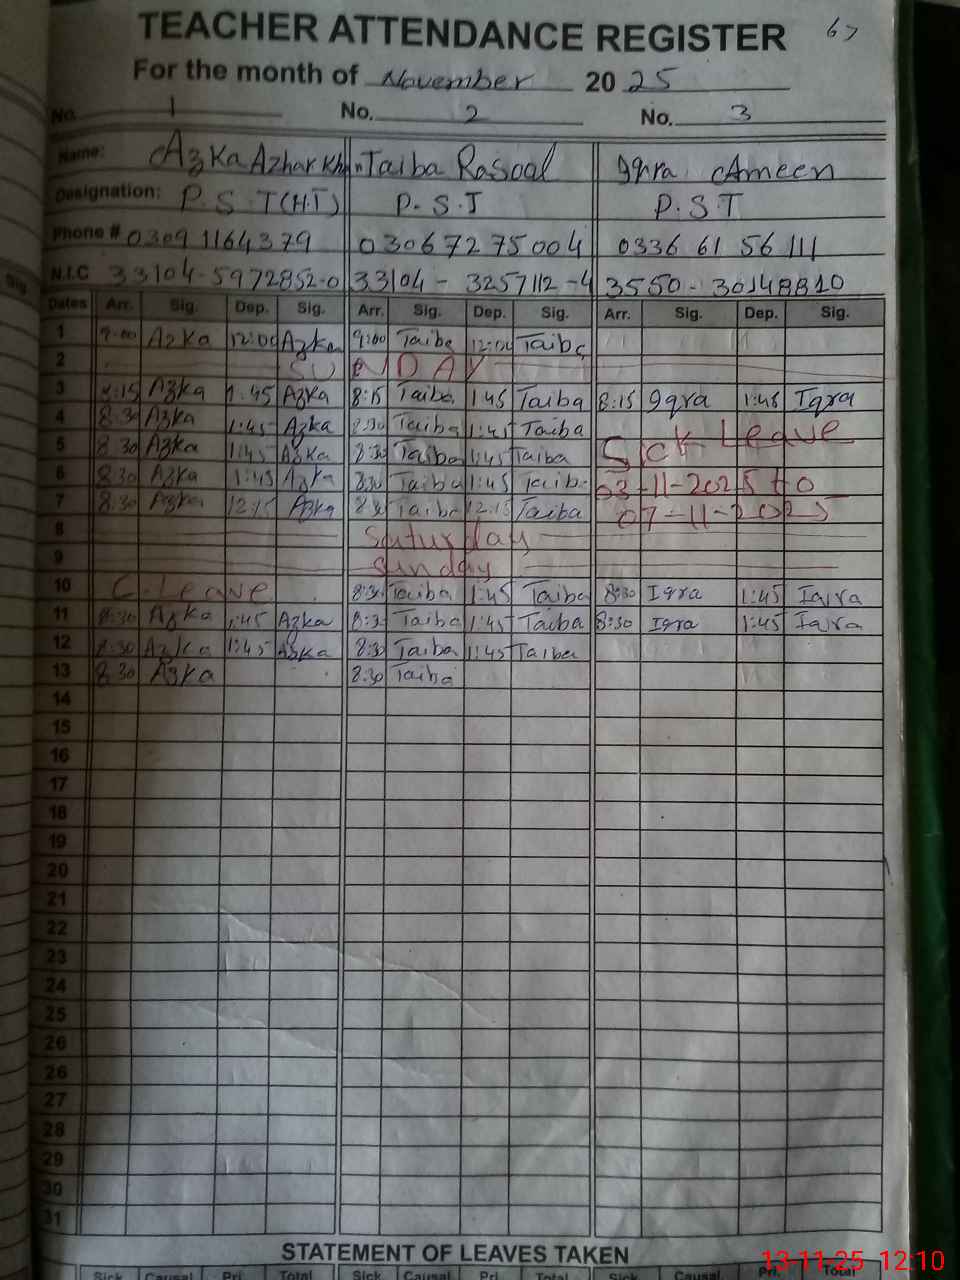 TEACHER ATTENDANCE REGISTER 67
For the month of November 2025
No. 1 No. 2 No. 3
Name: Azka Azhar Khan Taiba Rasool Iqra Ameen
Designation: P.S.T(H.T) P.S.T P.S.T
Phone # 0309 1164379 0306 72 75 004 0336 61 56 111
N.I.C 33104-5972852-0 33104-3257112-4 3550-30148810
Dates Arr. Sig. Dep. Sig. Arr. Sig. Dep. Sig. Arr. Sig. Dep. Sig.
1 9:00 Azka 12:00 Azka 9:00 Taiba 12:00 Taiba
2 SUNDAY
3 8:15 Azka 1:45 Azka 8:15 Taiba 1:45 Taiba 8:15 Iqra 1:45 Iqra
4 8:30 Azka 1:45 Azka 8:30 Taiba 1:45 Taiba Sick Leave
5 8:30 Azka 1:45 Azka 8:30 Taiba 1:45 Taiba
6 8:30 Azka 1:45 Azka 8:30 Taiba 1:45 Taiba 03-11-2025 to
7 8:30 Azka 12:15 Azka 8:30 Taiba 12:15 Taiba 07-11-2025
8 Saturday
9 Sunday
10 C.Leave 8:30 Taiba 1:45 Taiba 8:30 Iqra 1:45 Iqra
11 8:30 Azka 1:45 Azka 8:30 Taiba 1:45 Taiba 8:30 Iqra 1:45 Iqra
12 8:30 Azka 1:45 Azka 8:30 Taiba 1:45 Taiba
13 8:30 Azka 8:30 Taiba
14
15
16
17
18
19
20
21
22
23
24
25
26
26
27
28
29
30
31
STATEMENT OF LEAVES TAKEN
Sick Causal Pri. Total Sick. Causal Pri. Total Sick Causal. Pri. Total
13-11-25 12:10